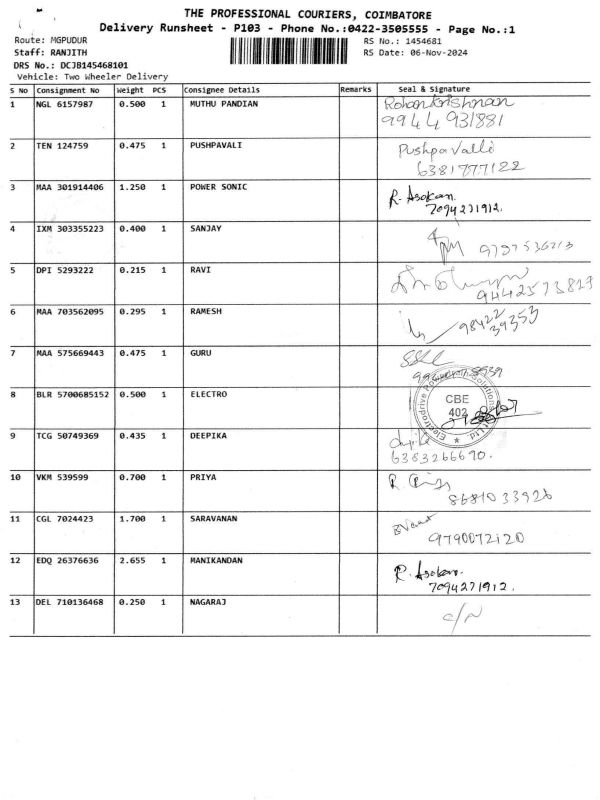 THE PROFESSIONAL COURIERS, COIMBATORE
Delivery Runsheet - P103 - Phone No.:0422-3505555 - Page No.:1
Route: MGPUDUR
RS No.: 1454681
Staff: RANJITH
RS Date: 06-Nov-2024
DRS No.: DCJB145468101
Vehicle: Two Wheeler Delivery
S No Consignment No Weight PCS Consignee Details Remarks Seal & Signature
1 NGL 6157987 0.500 1 MUTHU PANDIAN Rohan Krishnan
9944 931881
2 TEN 124759 0.475 1 PUSHPAVALI Pushpa Valli
6381777122
3 MAA 301914406 1.250 1 POWER SONIC R. Asokan.
7094271912.
4 IXM 303355223 0.400 1 SANJAY
5 DPI 5293222 0.215 1 RAVI
9442573829
6 MAA 703562095 0.295 1 RAMESH 98422
39353
7 MAA 575669443 0.475 1 GURU
8 BLR 5700685152 0.500 1 ELECTRO CBE
402
9 TCG 50749369 0.435 1 DEEPIKA
6383266690.
10 VKM 539599 0.700 1 PRIYA
8681033926
11 CGL 7024423 1.700 1 SARAVANAN
9790072120
12 EDQ 26376636 2.655 1 MANIKANDAN R. Asokan.
7094271912.
13 DEL 710136468 0.250 1 NAGARAJ